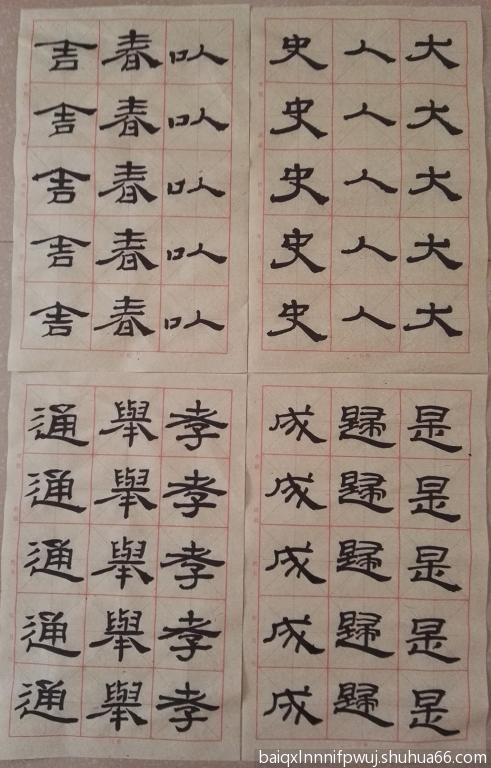 大大大大大
人人人人人
史史史史史
以以以以以
春春春春春
舍舍舍舍舍
是是是是是
歸歸歸歸歸
成成成成成
孝孝孝孝孝
舉舉舉舉舉
通通通通通
baiqxlnnnifpwuj.shuhua66.com